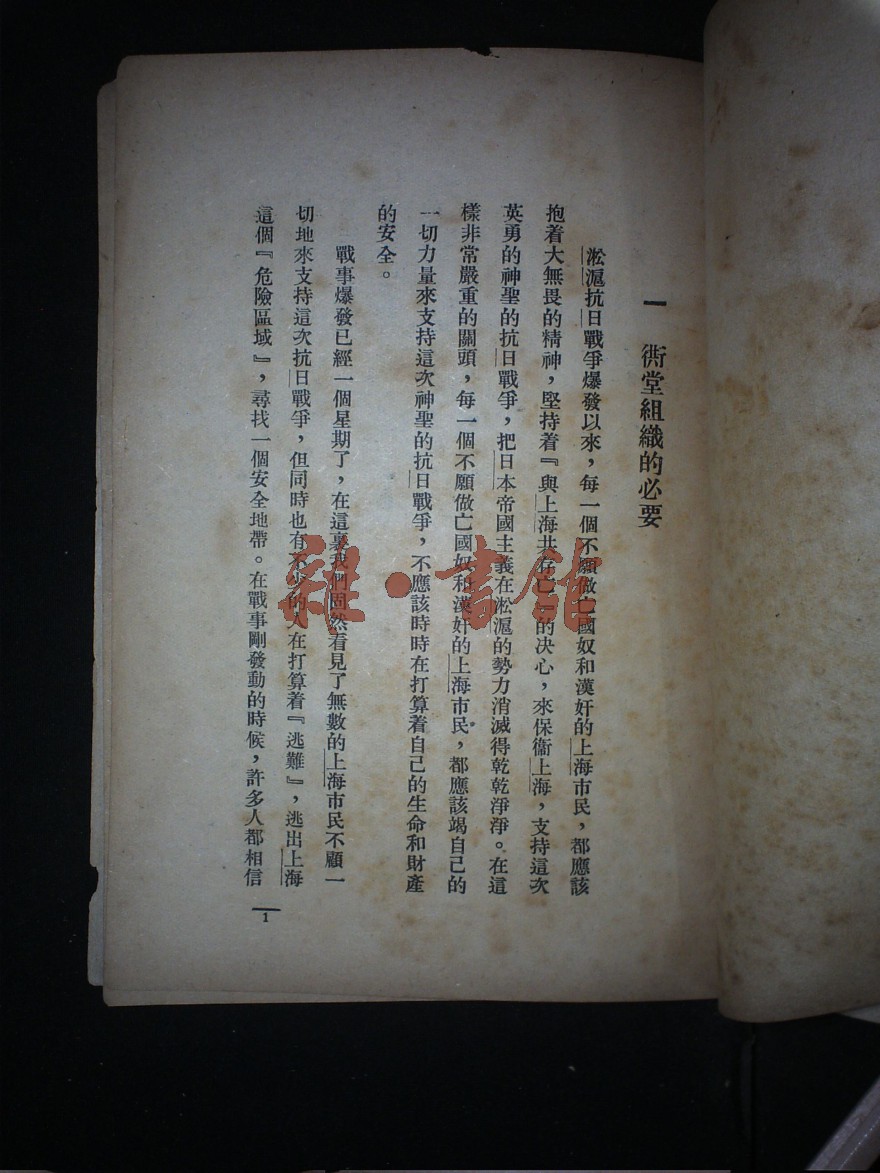 一 衖堂組織的必要
淞滬抗日戰爭爆發以來，每一個不願做亡國奴和漢奸的上海市民，都應該
抱着大無畏的精神，堅持着『與上海共存亡』的決心，來保衞上海，支持這次
英勇的神聖的抗日戰爭，把日本帝國主義在淞滬的勢力消滅得乾乾淨淨。在這
樣非常嚴重的關頭，每一個不願做亡國奴和漢奸的上海市民，都應該竭自己的
一切力量來支持這次神聖的抗日戰爭，不應該時時在打算着自己的生命和財產
的安全。
戰事爆發已經一個星期了，在這裏我們固然看見了無數的上海市民不顧一
切地來支持這次抗日戰爭，但同時也有不少的人在打算着『逃難』，逃出上海
這個『危險區域』，尋找一個安全地帶。在戰事剛發動的時候，許多人都相信
1
雜·書館